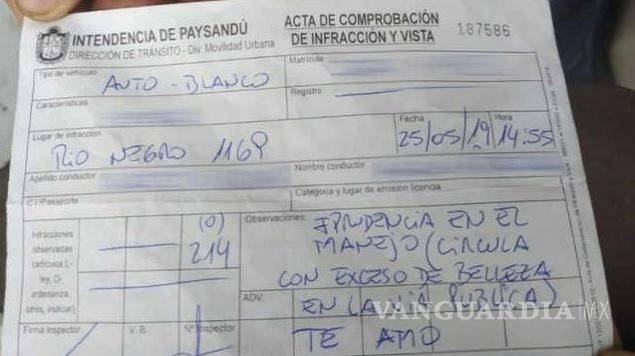 INTENDENCIA DE PAYSANDÚ
DIRECCIÓN DE TRÁNSITO - Div. Movilidad Urbana
ACTA DE COMPROBACIÓN
DE INFRACCIÓN Y VISTA
187586
Tipo de vehículo
AUTO - BLANCO
Matrícula
Características
Registro
Lugar de infracción
RIO NEGRO 1169
Fecha
25/05/19
Hora
14:55
Apellido conductor
Nombre conductor
C.I/Pasaporte
Categoría y lugar de emisión licencia
Infracciones
observadas
(artículos L-
ley, O-
ordenanza,
otros, indicar)
(0)
214
Observaciones:
IPRUDENCIA EN EL
MANEJO (CIRCULA
CON EXCESO DE BELLEZA
EN LA VIA PUBLICA)
ADV.
TE AMO
Firma Inspector
V. B.
Nº Inspector
VANGUARDIA MX